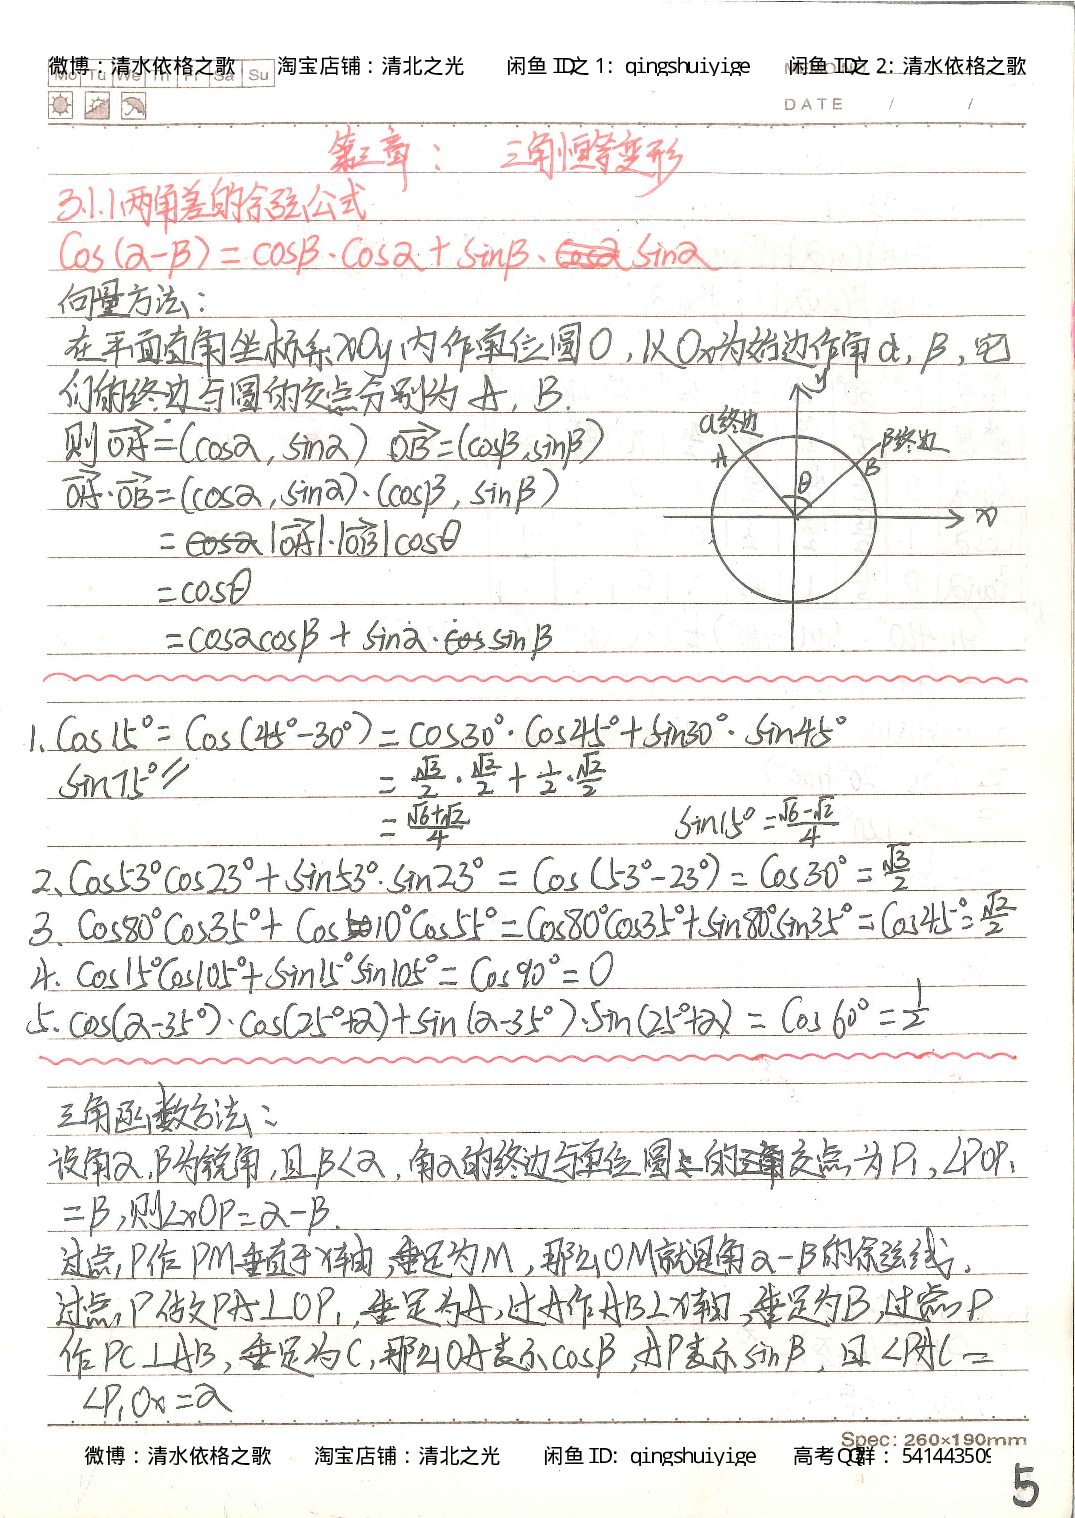 微博：清水依格之歌 淘宝店铺：清北之光 闲鱼 ID之 1: qingshuiyige 闲鱼 ID之 2: 清水依格之歌
Mo Tu We Th Fr Sa Su
DATE / /
第三章： 三角恒等变形
3.1.1 两角差的余弦公式
Cos(α-β) = cosβ·Cosα + sinβ·sinα
向量方法：
在平面直角坐标系xOy内作单位圆O，以Ox为始边作角α，β，它
们的终边与圆的交点分别为A，B.
则OA=(cosα, sinα) OB=(cosβ, sinβ)
OA·OB=(cosα, sinα)·(cosβ, sinβ)
=|OA|·|OB|cosθ
=cosθ
=cosαcosβ + sinα·sinβ
y
α终边
A
β终边
B
θ
x
1、Cos15°= Cos(45°-30°) = cos30°·Cos45°+sin30°·sin45°
sin75°〃 = √3/2·√2/2 + 1/2·√2/2
= (√6+√2)/4 sin15°=(√6-√2)/4
2、Cos53°Cos23°+sin53°·sin23° = Cos(53°-23°) = Cos30° = √3/2
3. Cos80°Cos35°+ Cos10°Cos55°=Cos80°Cos35°+sin80°sin35°=Cos45°=√2/2
4. Cos15°Cos105°+sin15°sin105°= Cos90°=0
5. cos(α-35°)·cos(25°+α)+sin(α-35°)·sin(25°+α) = Cos60° = 1/2
三角函数方法：
设角α，β为锐角，且β<α，角α的终边与单位圆的交点为P₁，∠POP₁
=β，则∠xOP=α-β.
过点P作PM垂直于x轴，垂足为M，那么OM就是角α-β的余弦线.
过点P做PA⊥OP₁，垂足为A，过A作AB⊥x轴，垂足为B，过点P
作PC⊥AB，垂足为C，那么OA表示cosβ，AP表示sinβ，且∠PAC=
∠P₁Ox=α
Spec: 260×190mm
微博：清水依格之歌 淘宝店铺：清北之光 闲鱼 ID: qingshuiyige 高考 QQ群： 541443509
5